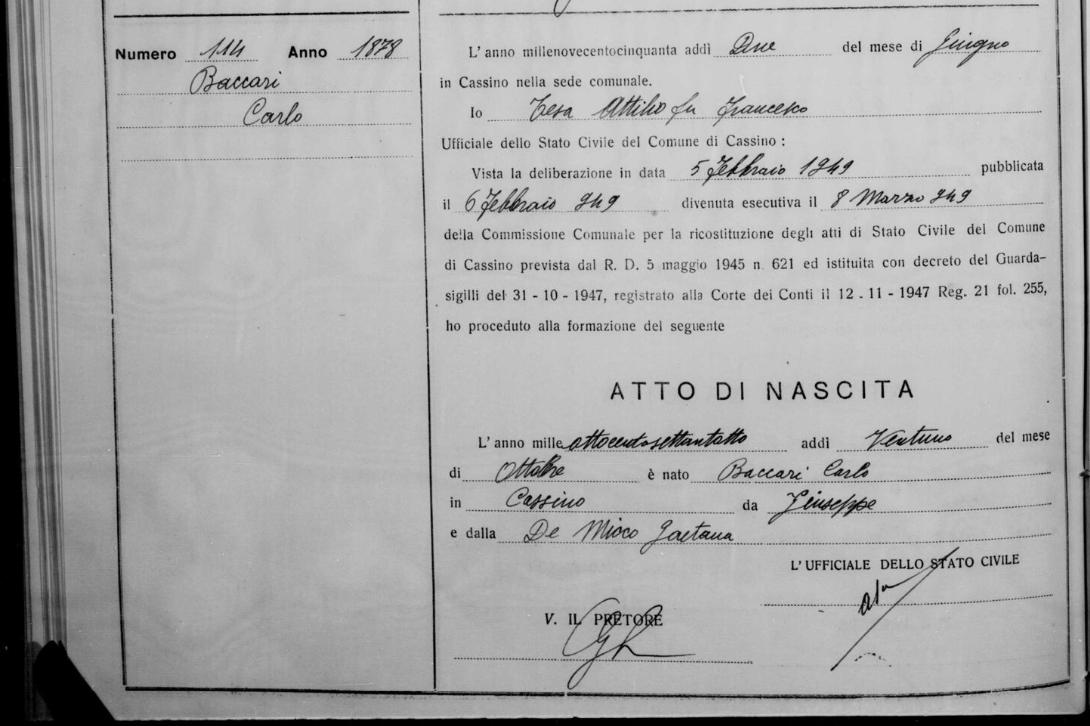 Numero 114 Anno 1878
Baccari
Carlo
L'anno millenovecentocinquanta addì Due del mese di Giugno
in Cassino nella sede comunale.
Io Tesa Attilio fu Francesco
Ufficiale dello Stato Civile del Comune di Cassino :
Vista la deliberazione in data 5 Febbraio 1949 pubblicata
il 6 Febbraio 949 divenuta esecutiva il 8 Marzo 949
della Commissione Comunale per la ricostituzione degli atti di Stato Civile del Comune
di Cassino prevista dal R. D. 5 maggio 1945 n. 621 ed istituita con decreto del Guarda-
sigilli del 31 - 10 - 1947, registrato alla Corte dei Conti il 12 . 11 - 1947 Reg. 21 fol. 255,
ho proceduto alla formazione del seguente
ATTO DI NASCITA
L'anno mille ottocentosettantotto addì Ventuno del mese
di Ottobre è nato Baccari Carlo
in Cassino da Giuseppe
e dalla De Mioco Gaetana
L'UFFICIALE DELLO STATO CIVILE
V. IL PRETORE